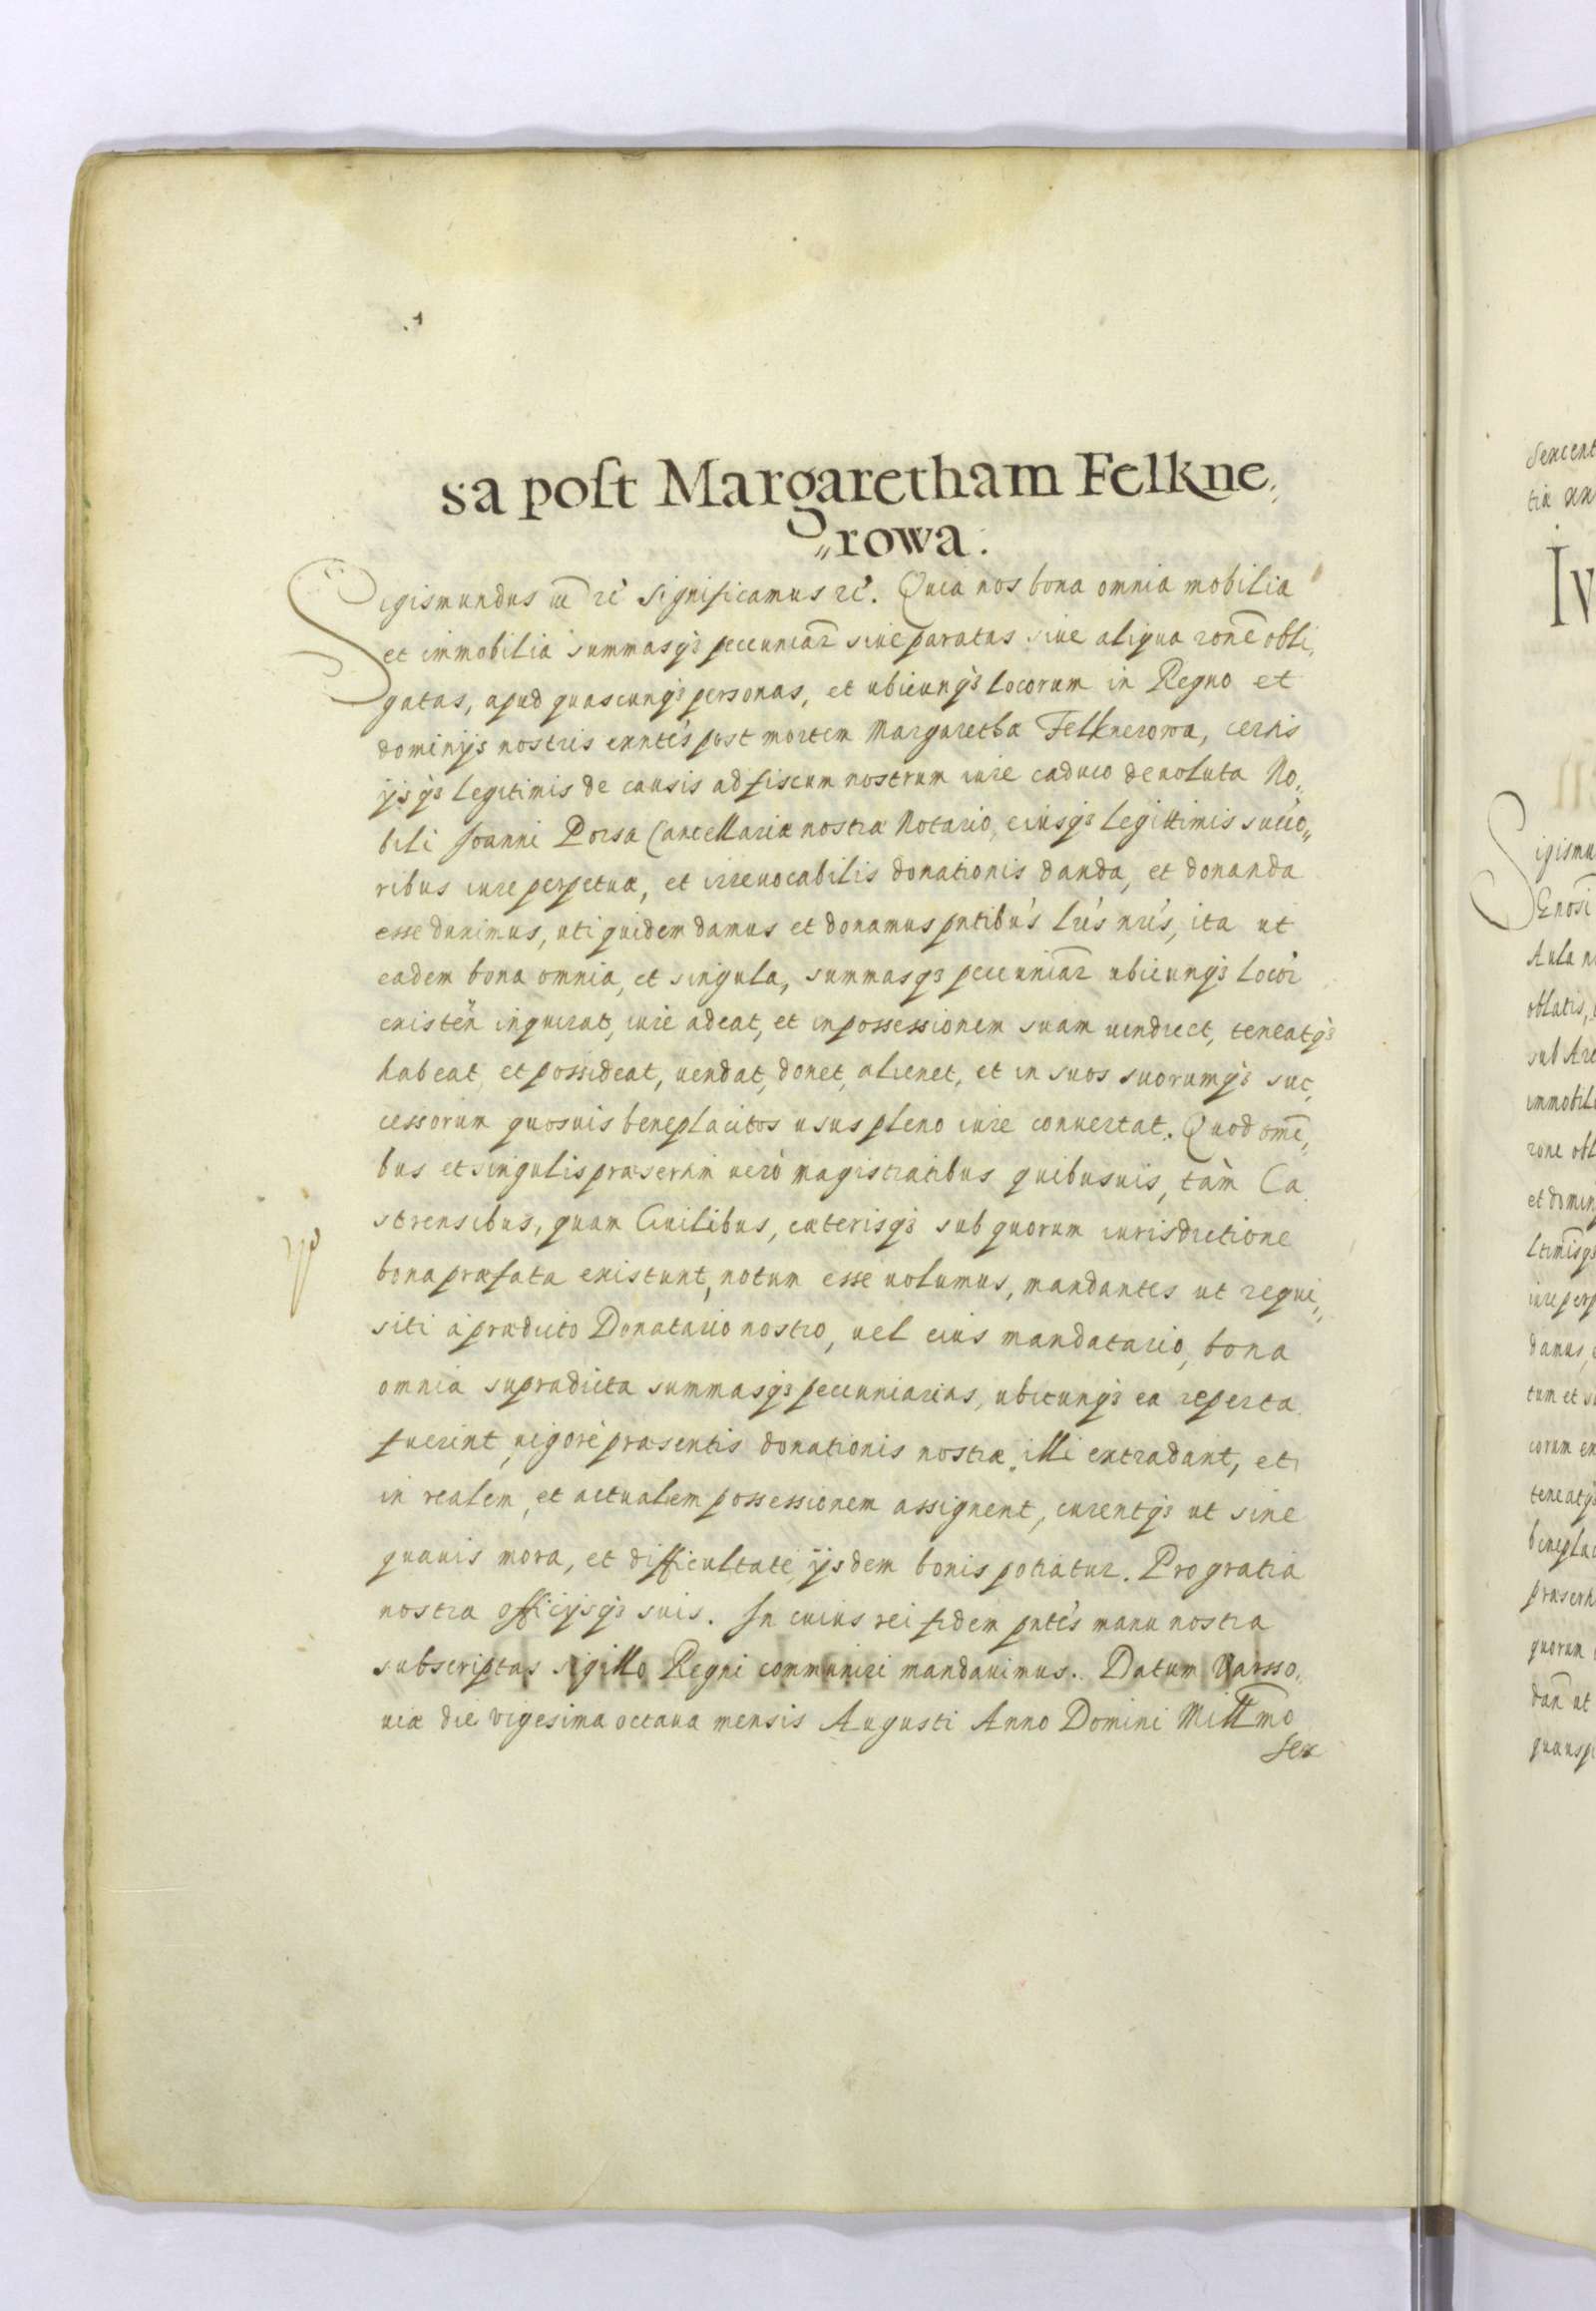 sa post Margaretham Felkne,
"rowa.
Sigismundus etc significamus etc. Quia nos bona omnia mobilia
et immobilia summasq3 pecuniar siue paratas siue aliqua rone obli,
gatas, apud quascunq3 personas, et ubicunq3 locorum in Regno et
dominijs nostris exntes post mortem Margarethæ Felknerowa, certis
ijsq3 legitimis de causis ad fiscum nostrum iure caduco deuoluta No,,
bili Joanni Porsa Cancellariæ nostræ Notario, eiusq3 legittimis succo"
ribus iure perpetuæ, et irreuocabilis donationis danda, et donanda
esse duximus, uti quidem damus et donamus pntibus lris nris, ita ut
eadem bona omnia, et singula, summasq3 pecuniar ubicunq3 locor
existen inquirat, iure adeat, et in possessionem suam uendicet, teneatq3
habeat et possideat, uendat, donet, alienet, et in suos suorumq3 suc,
cessorum quosuis beneplacitos usus pleno iure conuertat. Quod omi,,
bus et singulis præsertim uerò magistratibus quibusuis, tàm Ca
strensibus, quam Ciuilibus, cæterisq3 sub quorum iurisdictione
bona præfata existunt, notum esse uolumus, mandantes ut requi,,
siti à prædicto Donatario nostro, uel eius mandatario, bona
omnia supradicta summasq3 pecuniarias, ubicunq3 ea reperta
fuerint, uigore præsentis donationis nostræ illi extradant, et
in realem, et actualem possessionem assignent, curentq3 ut sine
quauis mora, et difficultate ijsdem bonis potiatur. Pro gratia
nostra officijsq3 suis. In cuius rei fidem pntes manu nostra
subscriptas sigillo Regni communiri mandauimus. Datum Varsso,,
uiæ die vigesima octaua mensis Augusti Anno Domini Millmo
sex
Sexcent
tiæ
Iv
Sigismu
Aula n
oblatis,
sub
immobil
rone obl
et domin
ltimisq3
iure perp
damus,
tum et
corum ex
teneatq3
beneplac
præsert
quorum
dan ut